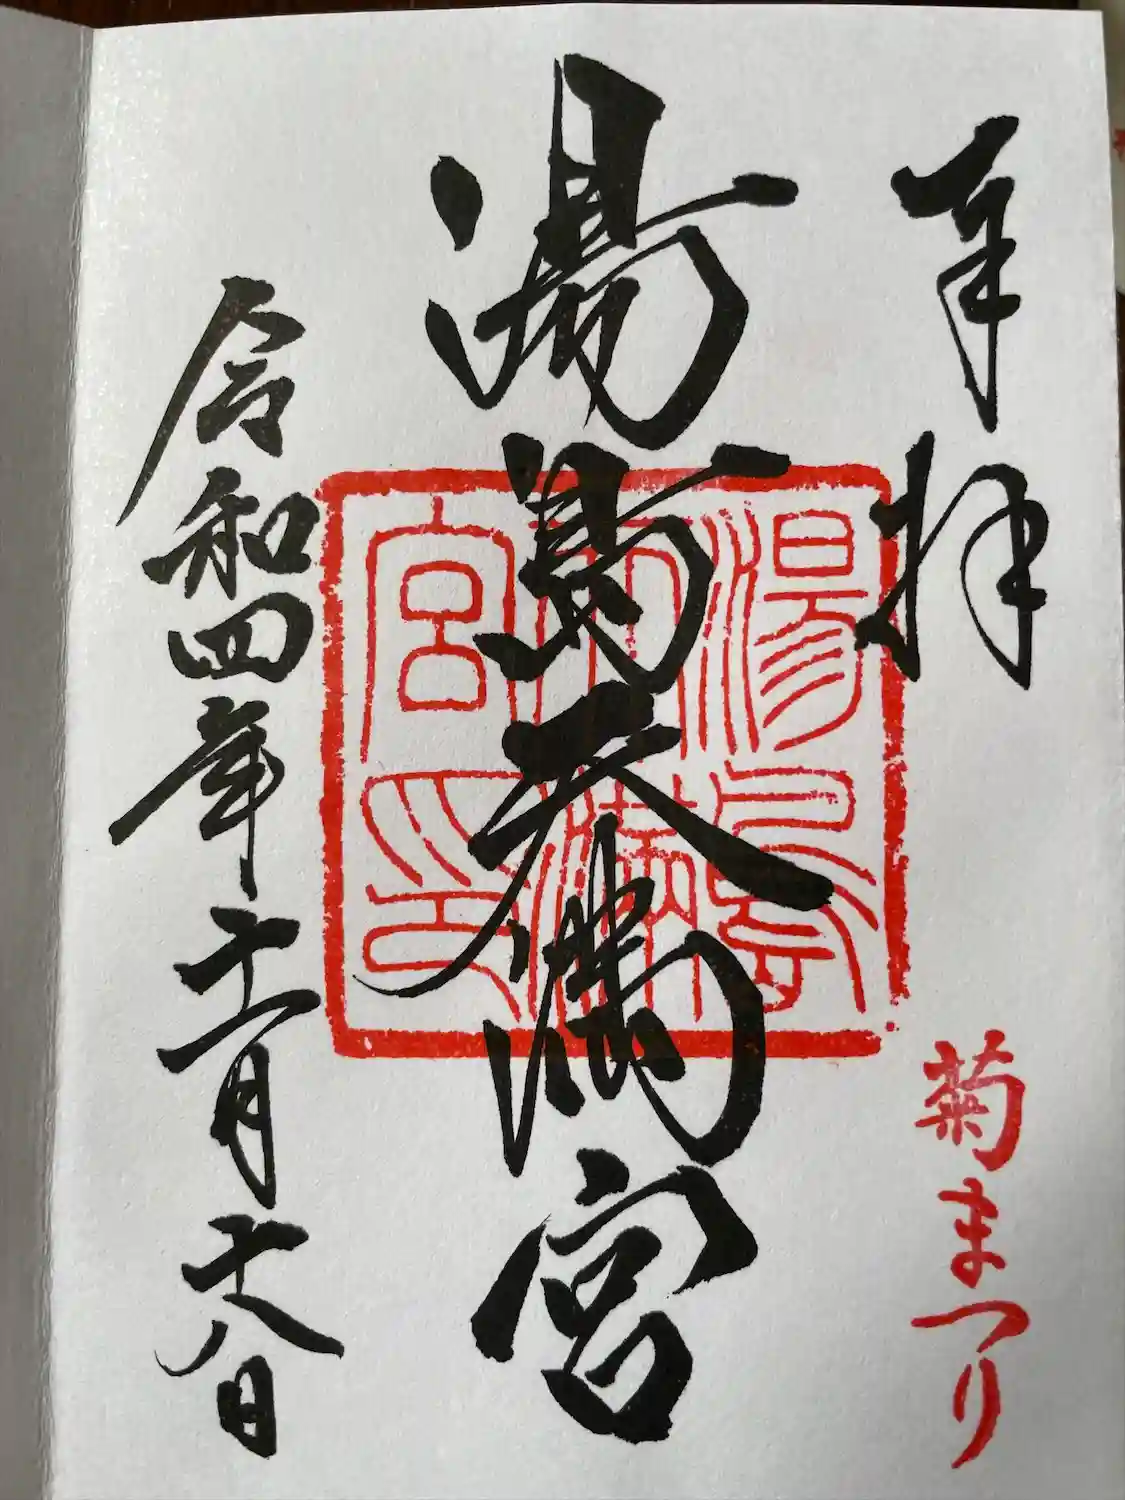 奉拝
菊まつり
湯島天満宮
湯島天満宮印
令和四年十一月十八日